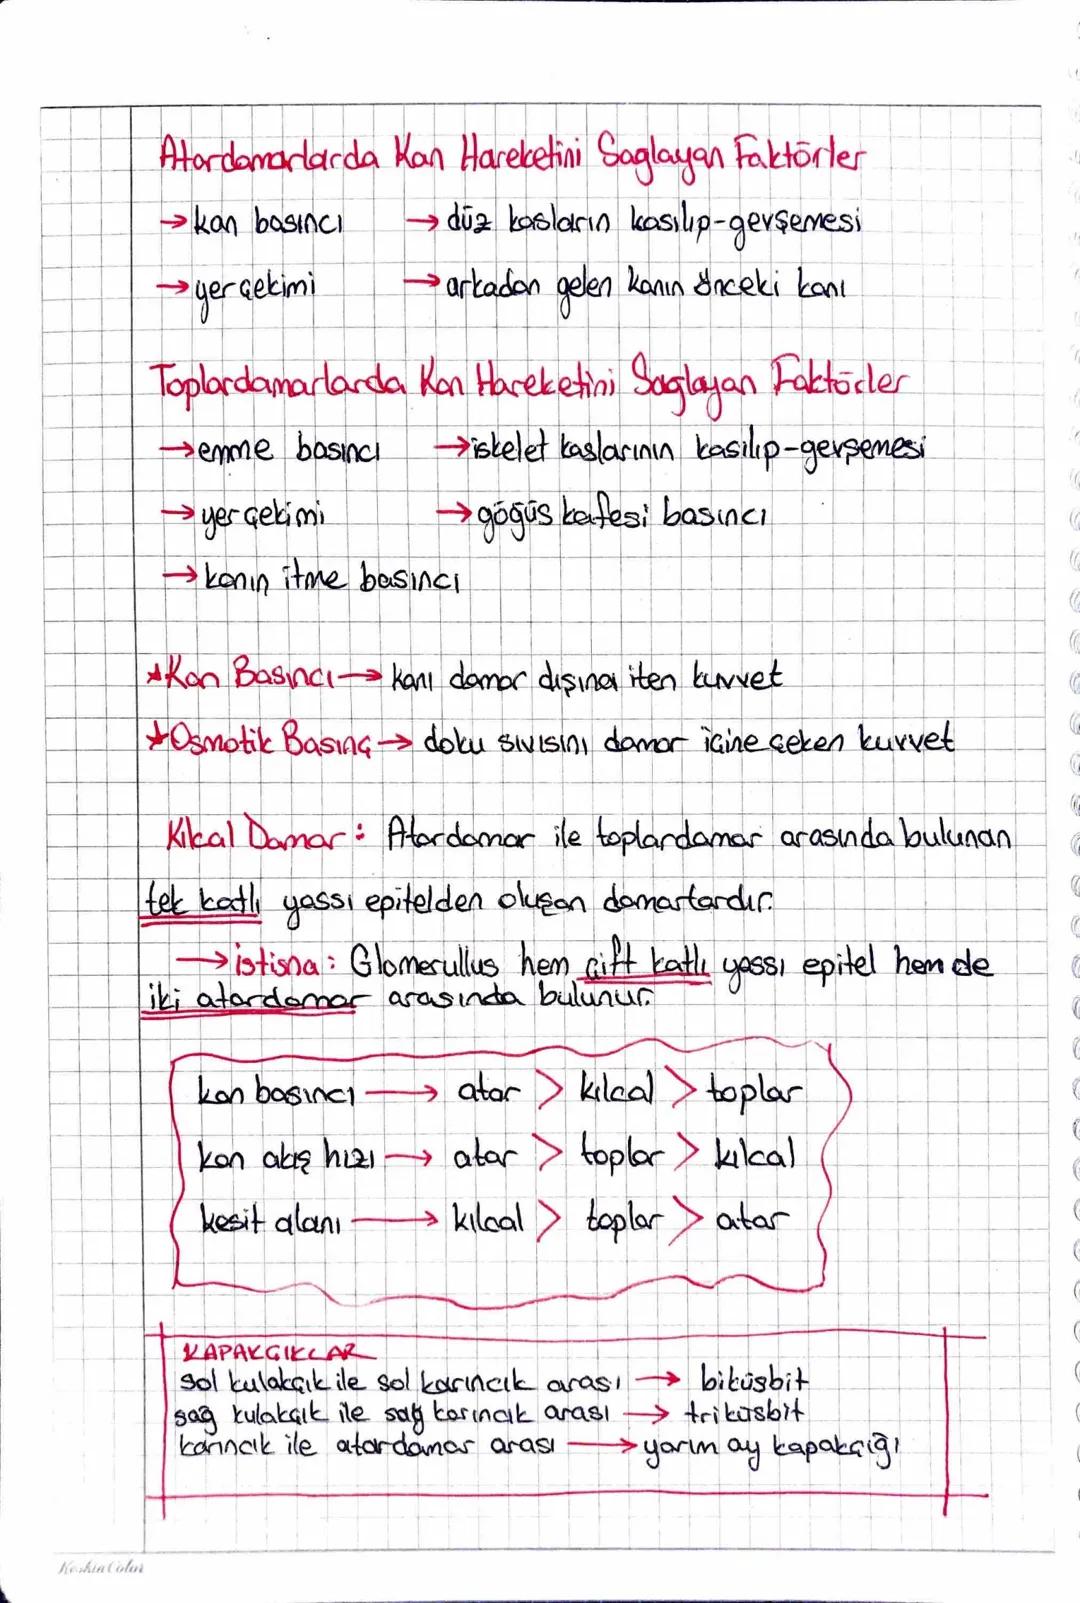 Atardamarlarda Kan Hareketini Sağlayan Faktörler
→ kan basıncı → düz kasların kasılıp-gevşemesi
→ yer çekimi → arkadan gelen kanın önceki kanı
Toplardamarlarda Kan Hareketini Sağlayan Faktörler
→ emme basıncı → iskelet kaslarının kasılıp-gevşemesi
→ yer çekimi → göğüs kafesi basıncı
→ kanın itme basıncı
★ Kan Basıncı → kanı damar dışına iten kuvvet
★ Osmotik Basınç → doku sıvısını damar içine çeken kuvvet
Kılcal Damar : Atardamar ile toplardamar arasında bulunan
tek katlı yassı epitelden oluşan damarlardır.
→ istisna : Glomerullus hem çift katlı yassı epitel hem de
iki atardamar arasında bulunur.
kan basıncı → atar > kılcal > toplar
kan akış hızı → atar > toplar > kılcal
kesit alanı → kılcal > toplar > atar
KAPAKÇIKLAR
sol kulakçık ile sol karıncık arası → biküsbit
sağ kulakçık ile sağ karıncık arası → triküsbit
karıncık ile atardamar arası → yarım ay kapakçığı
Keskin Color